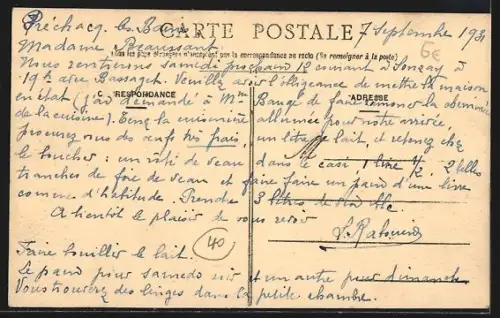 Préchacq les Bains 7 Septembre 193
CARTE POSTALE
6€
Madame Beaussart
par la correspondance au recto (Se renseigner à la poste)
Nous rentrerons samedi prochain 12 courant à Sonzay à
19h avec Bassaget. Veuillez avoir l'obligeance de mettre la maison
CORRESPONDANCE
ADRESSE
en état (j'ai demandé à Mr Baugé de faire ramoner la cheminée
de la cuisine). Tenez la cuisinière allumée pour notre arrivée.
procurez nous des œufs très frais, un litre de lait, et retenez chez
le boucher : un rôti de veau dans le 1 livre 1/2, 2 belles
tranches de foie de veau et faire faire un pain d'une livre
comme d'habitude. Prendre 3 litres de vin blc
A bientôt le plaisir de vous revoir
40
Faire bouillir le lait.
le pain pour samedi soir et un autre pour dimanche
Vous trouverez des linges dans la petite chambre.